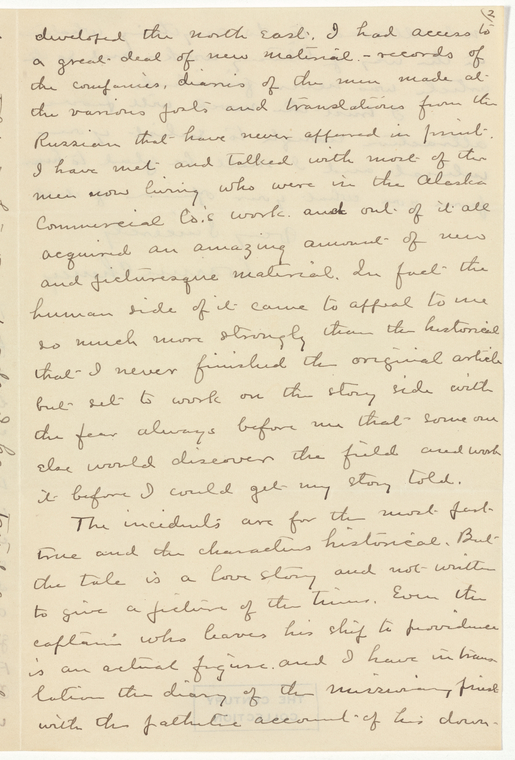 2
developed the north East. I had access to
a great deal of new material - records of
the companies, diaries of the men made at
the various posts and translations from the
Russian that have never appeared in print.
I have met and talked with most of the
men now living who were in the Alaska
Commercial Co.'s work and out of it all
acquired an amazing amount of new
and picturesque material. In fact the
human side of it came to appeal to me
so much more strongly than the historical
that I never finished the original article
but set to work on the story side with
the fear always before me that some one
else would discover the field and work
it before I could get my story told.
The incidents are for the most part
true and the characters historical. But
the tale is a love story and not written
to give a picture of the times. Even the
captain who leaves his ship to providence
is an actual figure. and I have in trans-
lation the diary of the missionary priest
with the pathetic account of his down-
THE CENTURY
COLLECTION